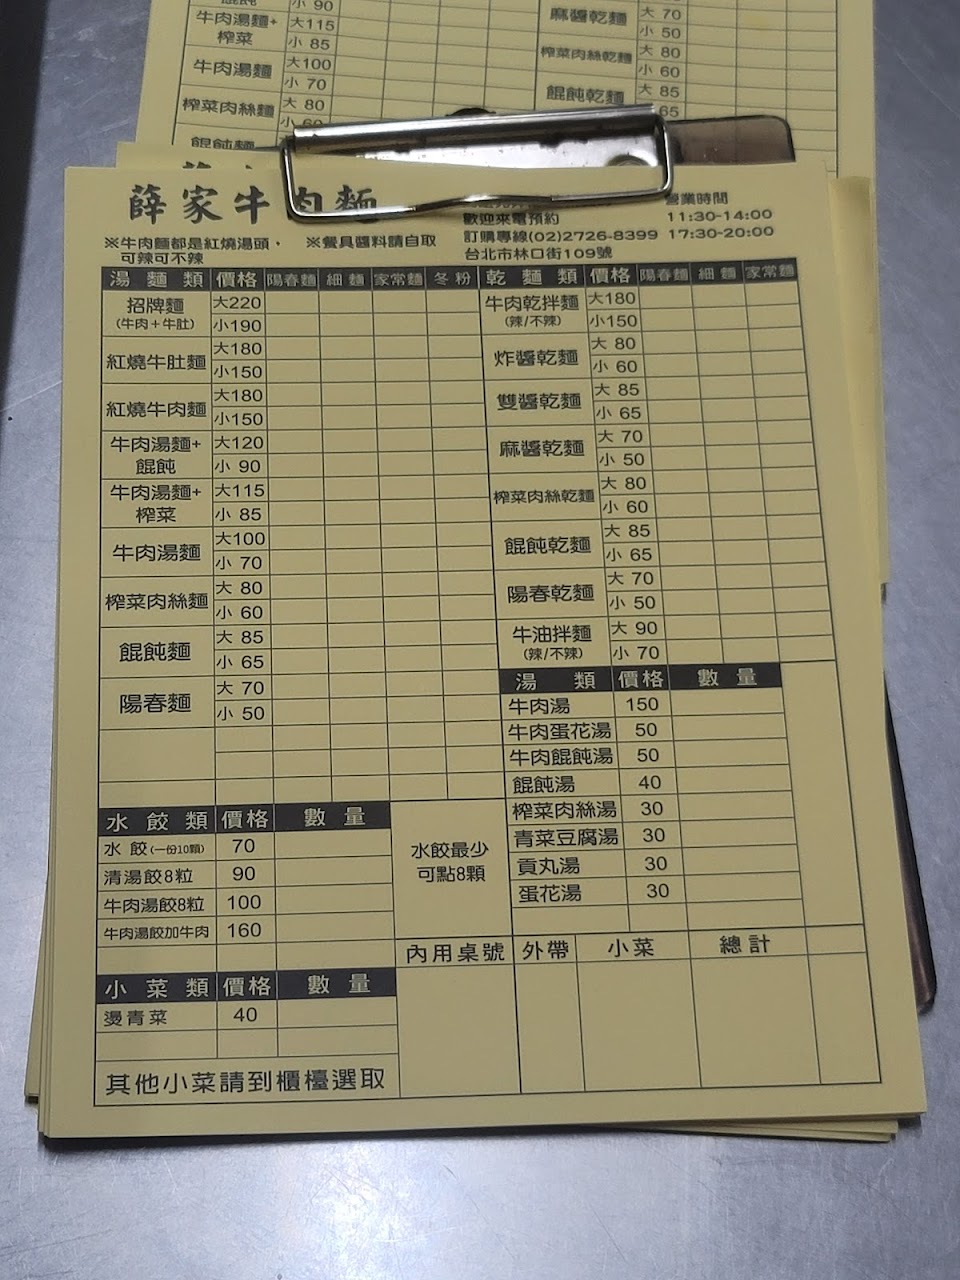 小 90
牛肉湯麵+
榨菜
大115
小 85
牛肉湯麵
大100
小 70
榨菜肉絲麵
大 80
小 60
餛飩麵
麻醬乾麵
大 70
小 50
榨菜肉絲乾麵
大 80
小 60
餛飩乾麵
大 85
65
薛家牛肉麵
※牛肉麵都是紅燒湯頭,
可辣可不辣
※餐具醬料請自取
歡迎來電預約
訂購專線(02)2726-8399
台北市林口街109號
營業時間
11:30-14:00
17:30-20:00
湯 麵 類 價格 陽春麵 細 麵 家常麵 冬 粉
招牌麵
(牛肉+牛肚)
大220
小190
紅燒牛肚麵
大180
小150
紅燒牛肉麵
大180
小150
牛肉湯麵+
餛飩
大120
小 90
牛肉湯麵+
榨菜
大115
小 85
牛肉湯麵
大100
小 70
榨菜肉絲麵
大 80
小 60
餛飩麵
大 85
小 65
陽春麵
大 70
小 50
乾 麵 類 價格 陽春麵 細 麵 家常麵
牛肉乾拌麵
(辣/不辣)
大180
小150
炸醬乾麵
大 80
小 60
雙醬乾麵
大 85
小 65
麻醬乾麵
大 70
小 50
榨菜肉絲乾麵
大 80
小 60
餛飩乾麵
大 85
小 65
陽春乾麵
大 70
小 50
牛油拌麵
(辣/不辣)
大 90
小 70
湯 類 價格 數 量
牛肉湯 150
牛肉蛋花湯 50
牛肉餛飩湯 50
餛飩湯 40
榨菜肉絲湯 30
青菜豆腐湯 30
貢丸湯 30
蛋花湯 30
水 餃 類 價格 數 量
水 餃(一份10顆) 70
清湯餃8粒 90
牛肉湯餃8粒 100
牛肉湯餃加牛肉 160
水餃最少
可點8顆
小 菜 類 價格 數 量
燙青菜 40
其他小菜請到櫃檯選取
內用桌號 外帶 小菜 總計